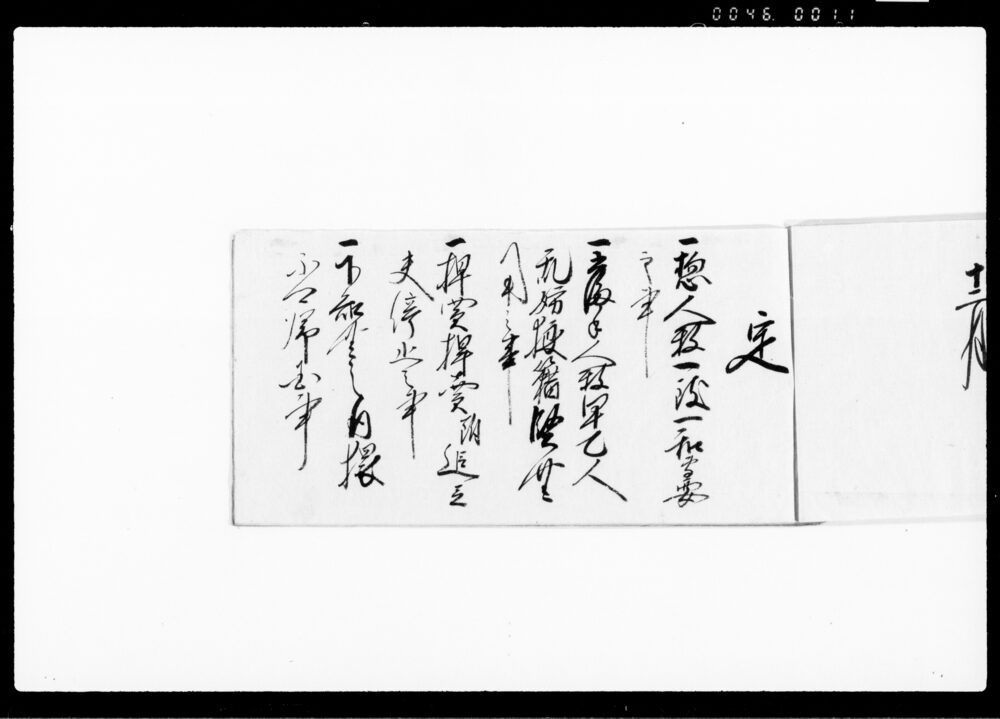 0046 0011
十二月
定
一惣人数一致一和専要
之事
一人数甲乙人
乱妨狼藉堅
之事
一押買押売附追立
夫停止之事
一下知無之内猥
不可帰国事